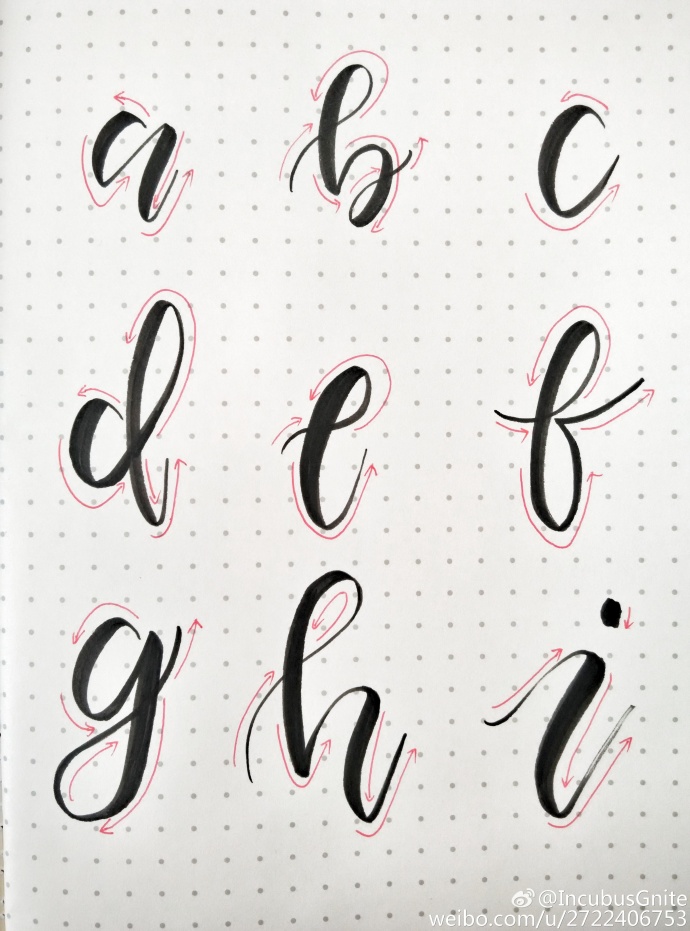 a b c
d e f
g h i
@IncubusGnite
weibo.com/u/2722406753